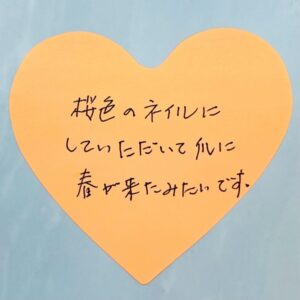 桜色のネイルに
していただいて爪に
春が来たみたいです。